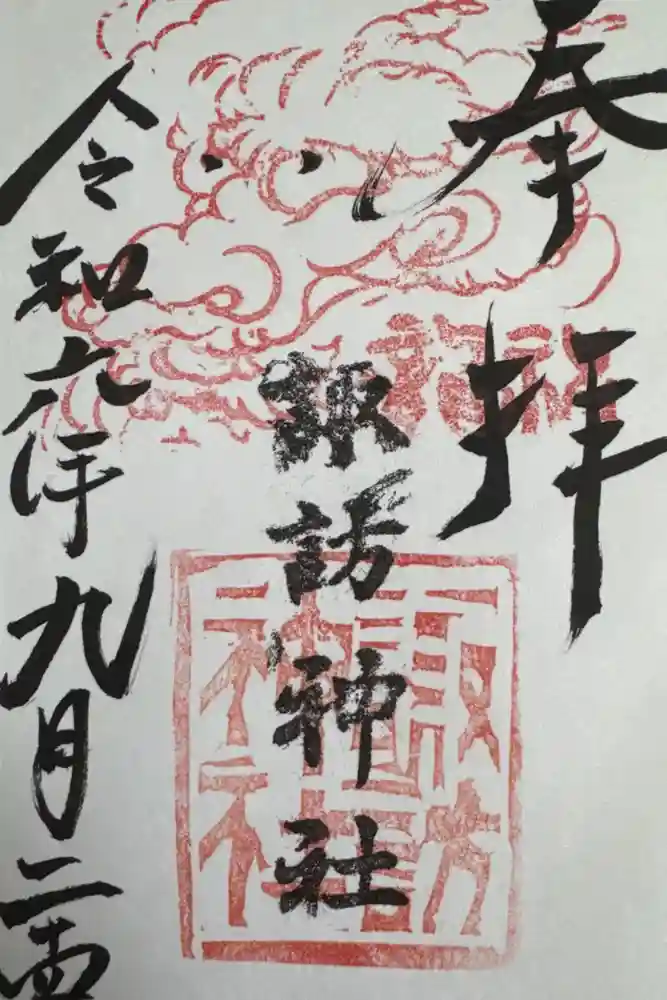 奉拝
諏訪神社
諏訪神社
令和六年九月二